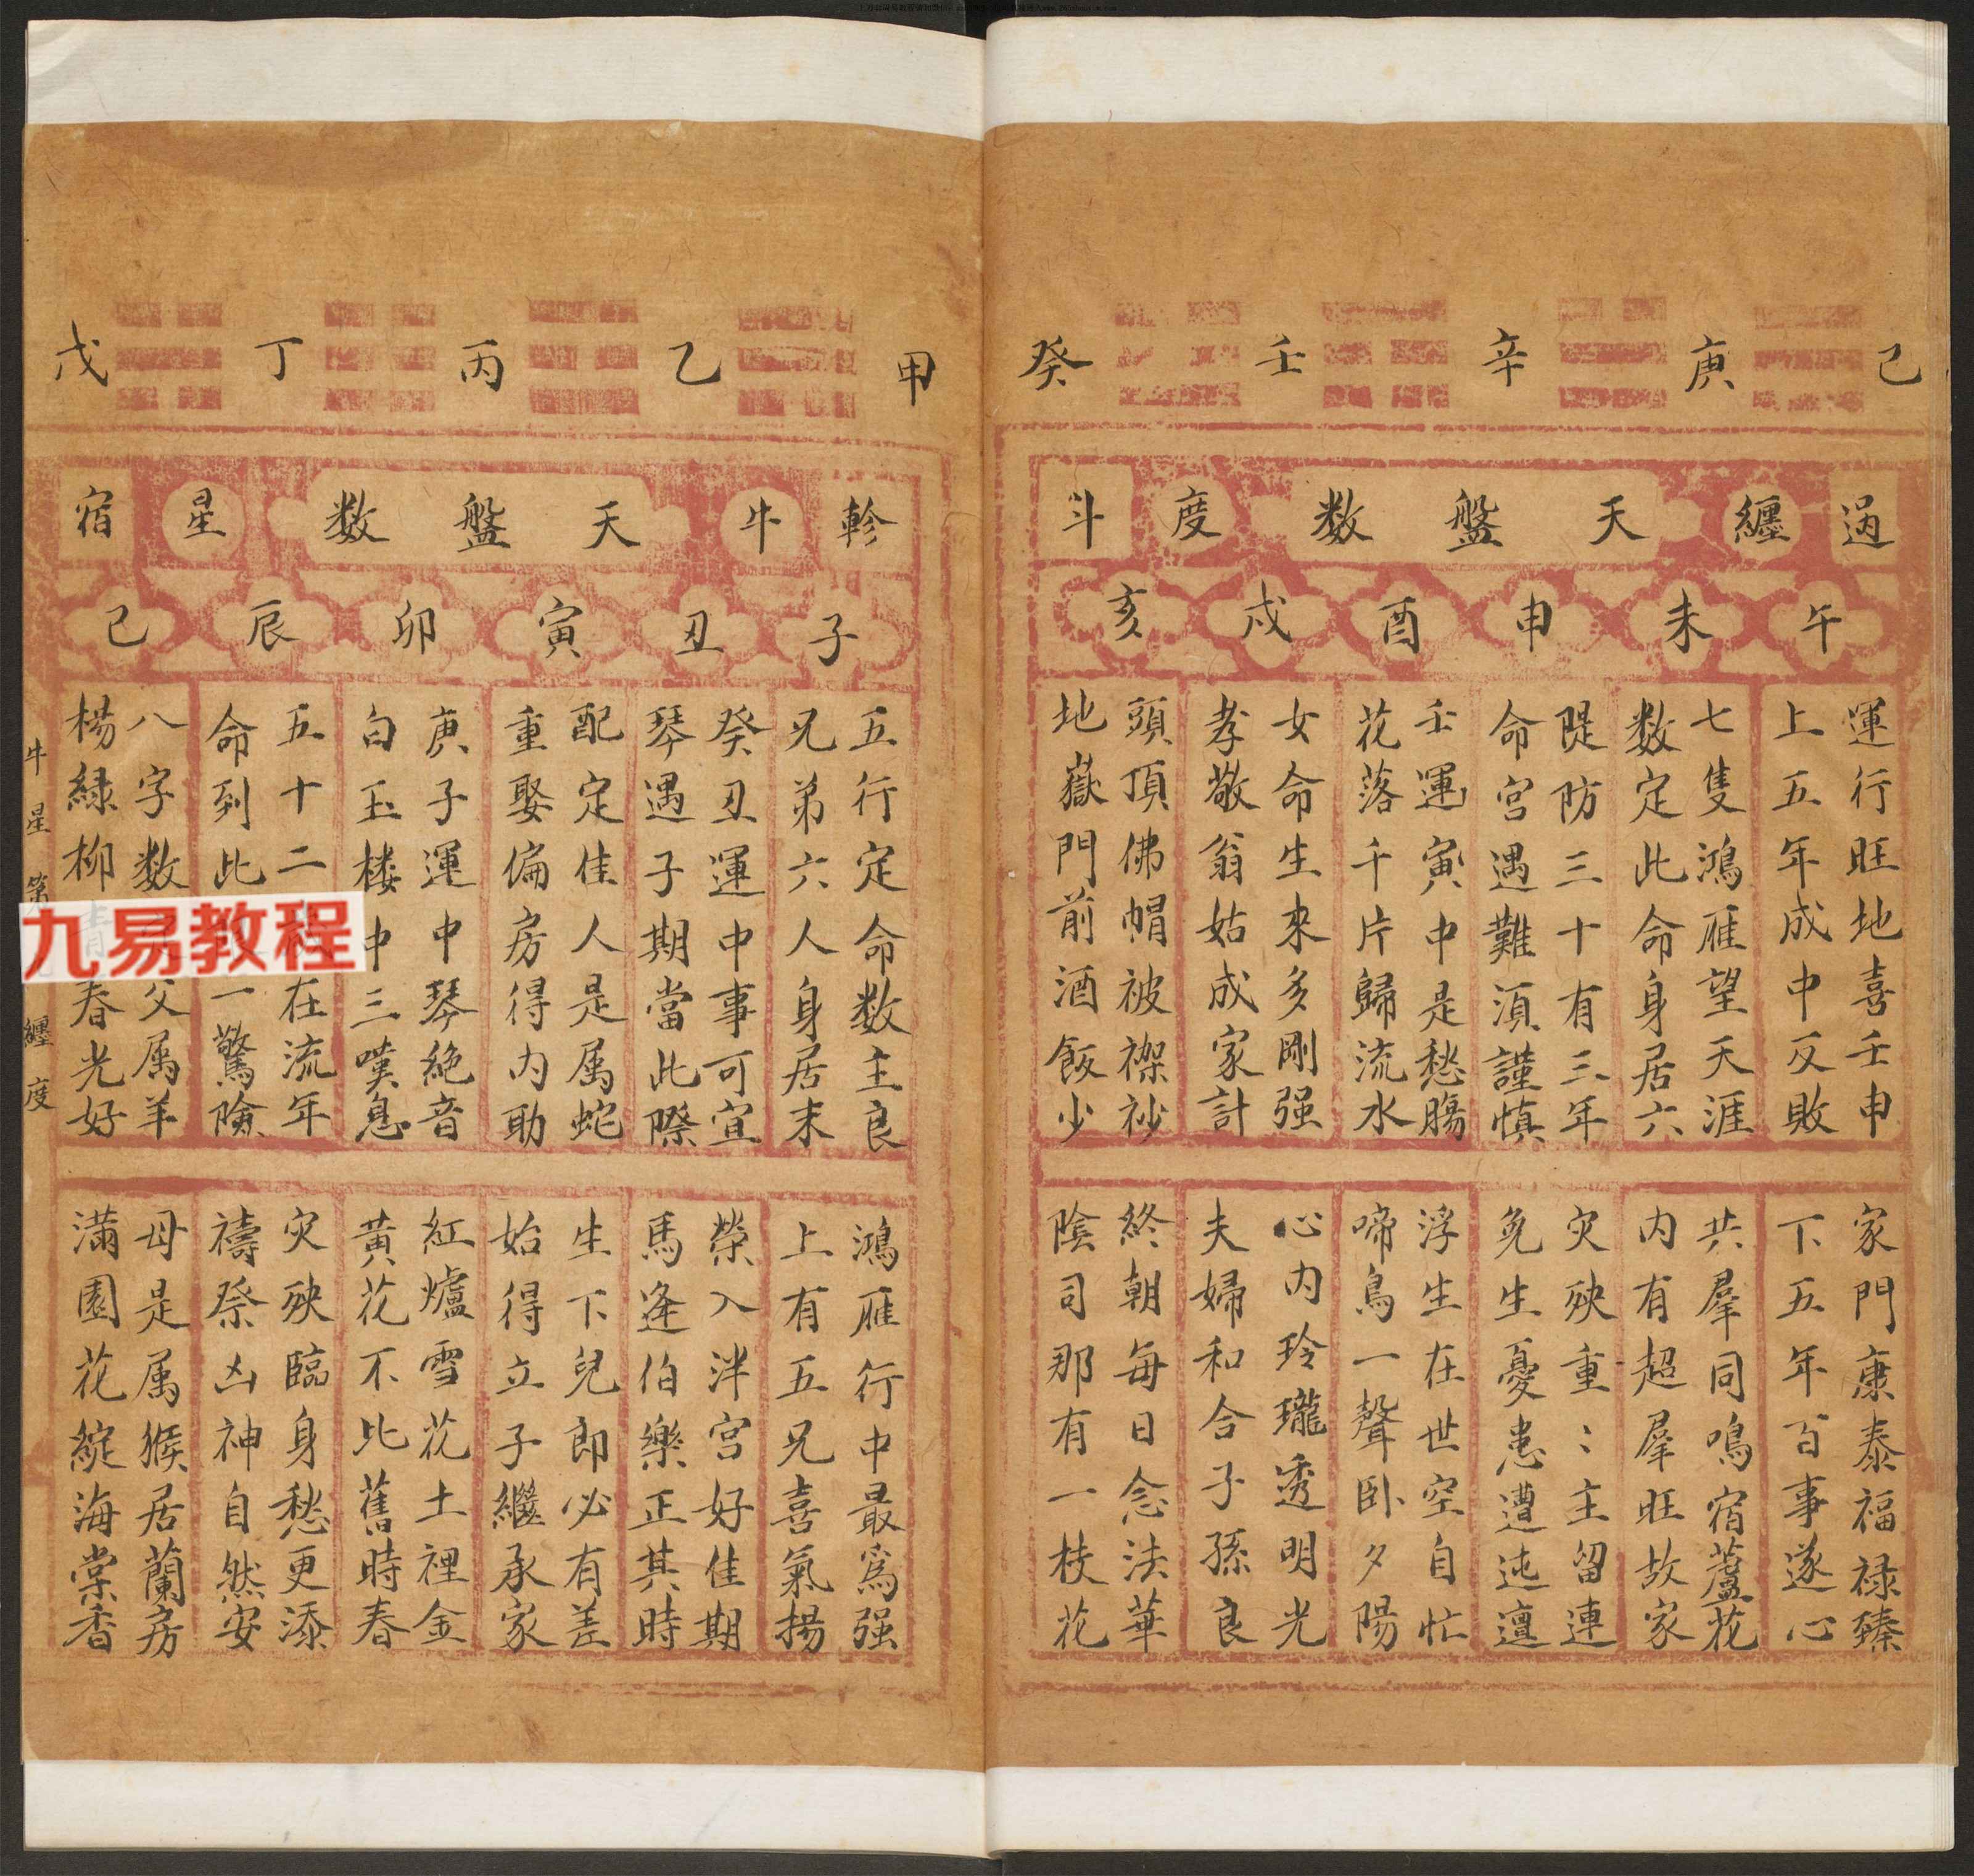 己 庚 辛 壬 癸
過 纏 天盤数 度 斗
午 未 申 酉 戌 亥
運行旺地喜壬申
上五年成中反敗
七隻鴻雁望天涯
数定此命身居六
隄防三十有三年
命宮遇難湏謹慎
壬運寅中是愁腸
花落千片歸流水
女命生來多剛强
孝敬翁姑成家計
頭頂佛帽被襟衫
地嶽門前酒飯少
家門康泰福禄臻
下五年百事遂心
共羣同鳴宿蘆花
内有超羣旺故家
灾殃重：主留連
免生憂患遭迍邅
浮生在世空自忙
啼鳥一聲卧夕陽
心内玲瓏透明光
夫婦和合子孫良
終朝每日念法華
陰司那有一枝花
甲 乙 丙 丁 戊
軫 牛 天盤数 星 宿
子 丑 寅 卯 辰 巳
五行定命数主良
兄弟六人身居末
癸丑運中事可宜
琴遇子期當此際
配定佳人是属蛇
重娶偏房得内助
庚子運中琴絶音
白玉楼中三嘆息
五十二 在流年
命到此 一驚險
八字数 父属羊
楊緑柳 春光好
鴻雁行中最為强
上有五兄喜氣揚
榮入泮宮好佳期
馬逢伯樂正其時
生下兒郎必有差
始得立子繼承家
紅爐雪花土裡金
黄花不比舊時春
灾殃臨身愁更添
禱祭凶神自然安
母是属猴居蘭房
滿園花綻海棠香
牛星 纏度
九易教程